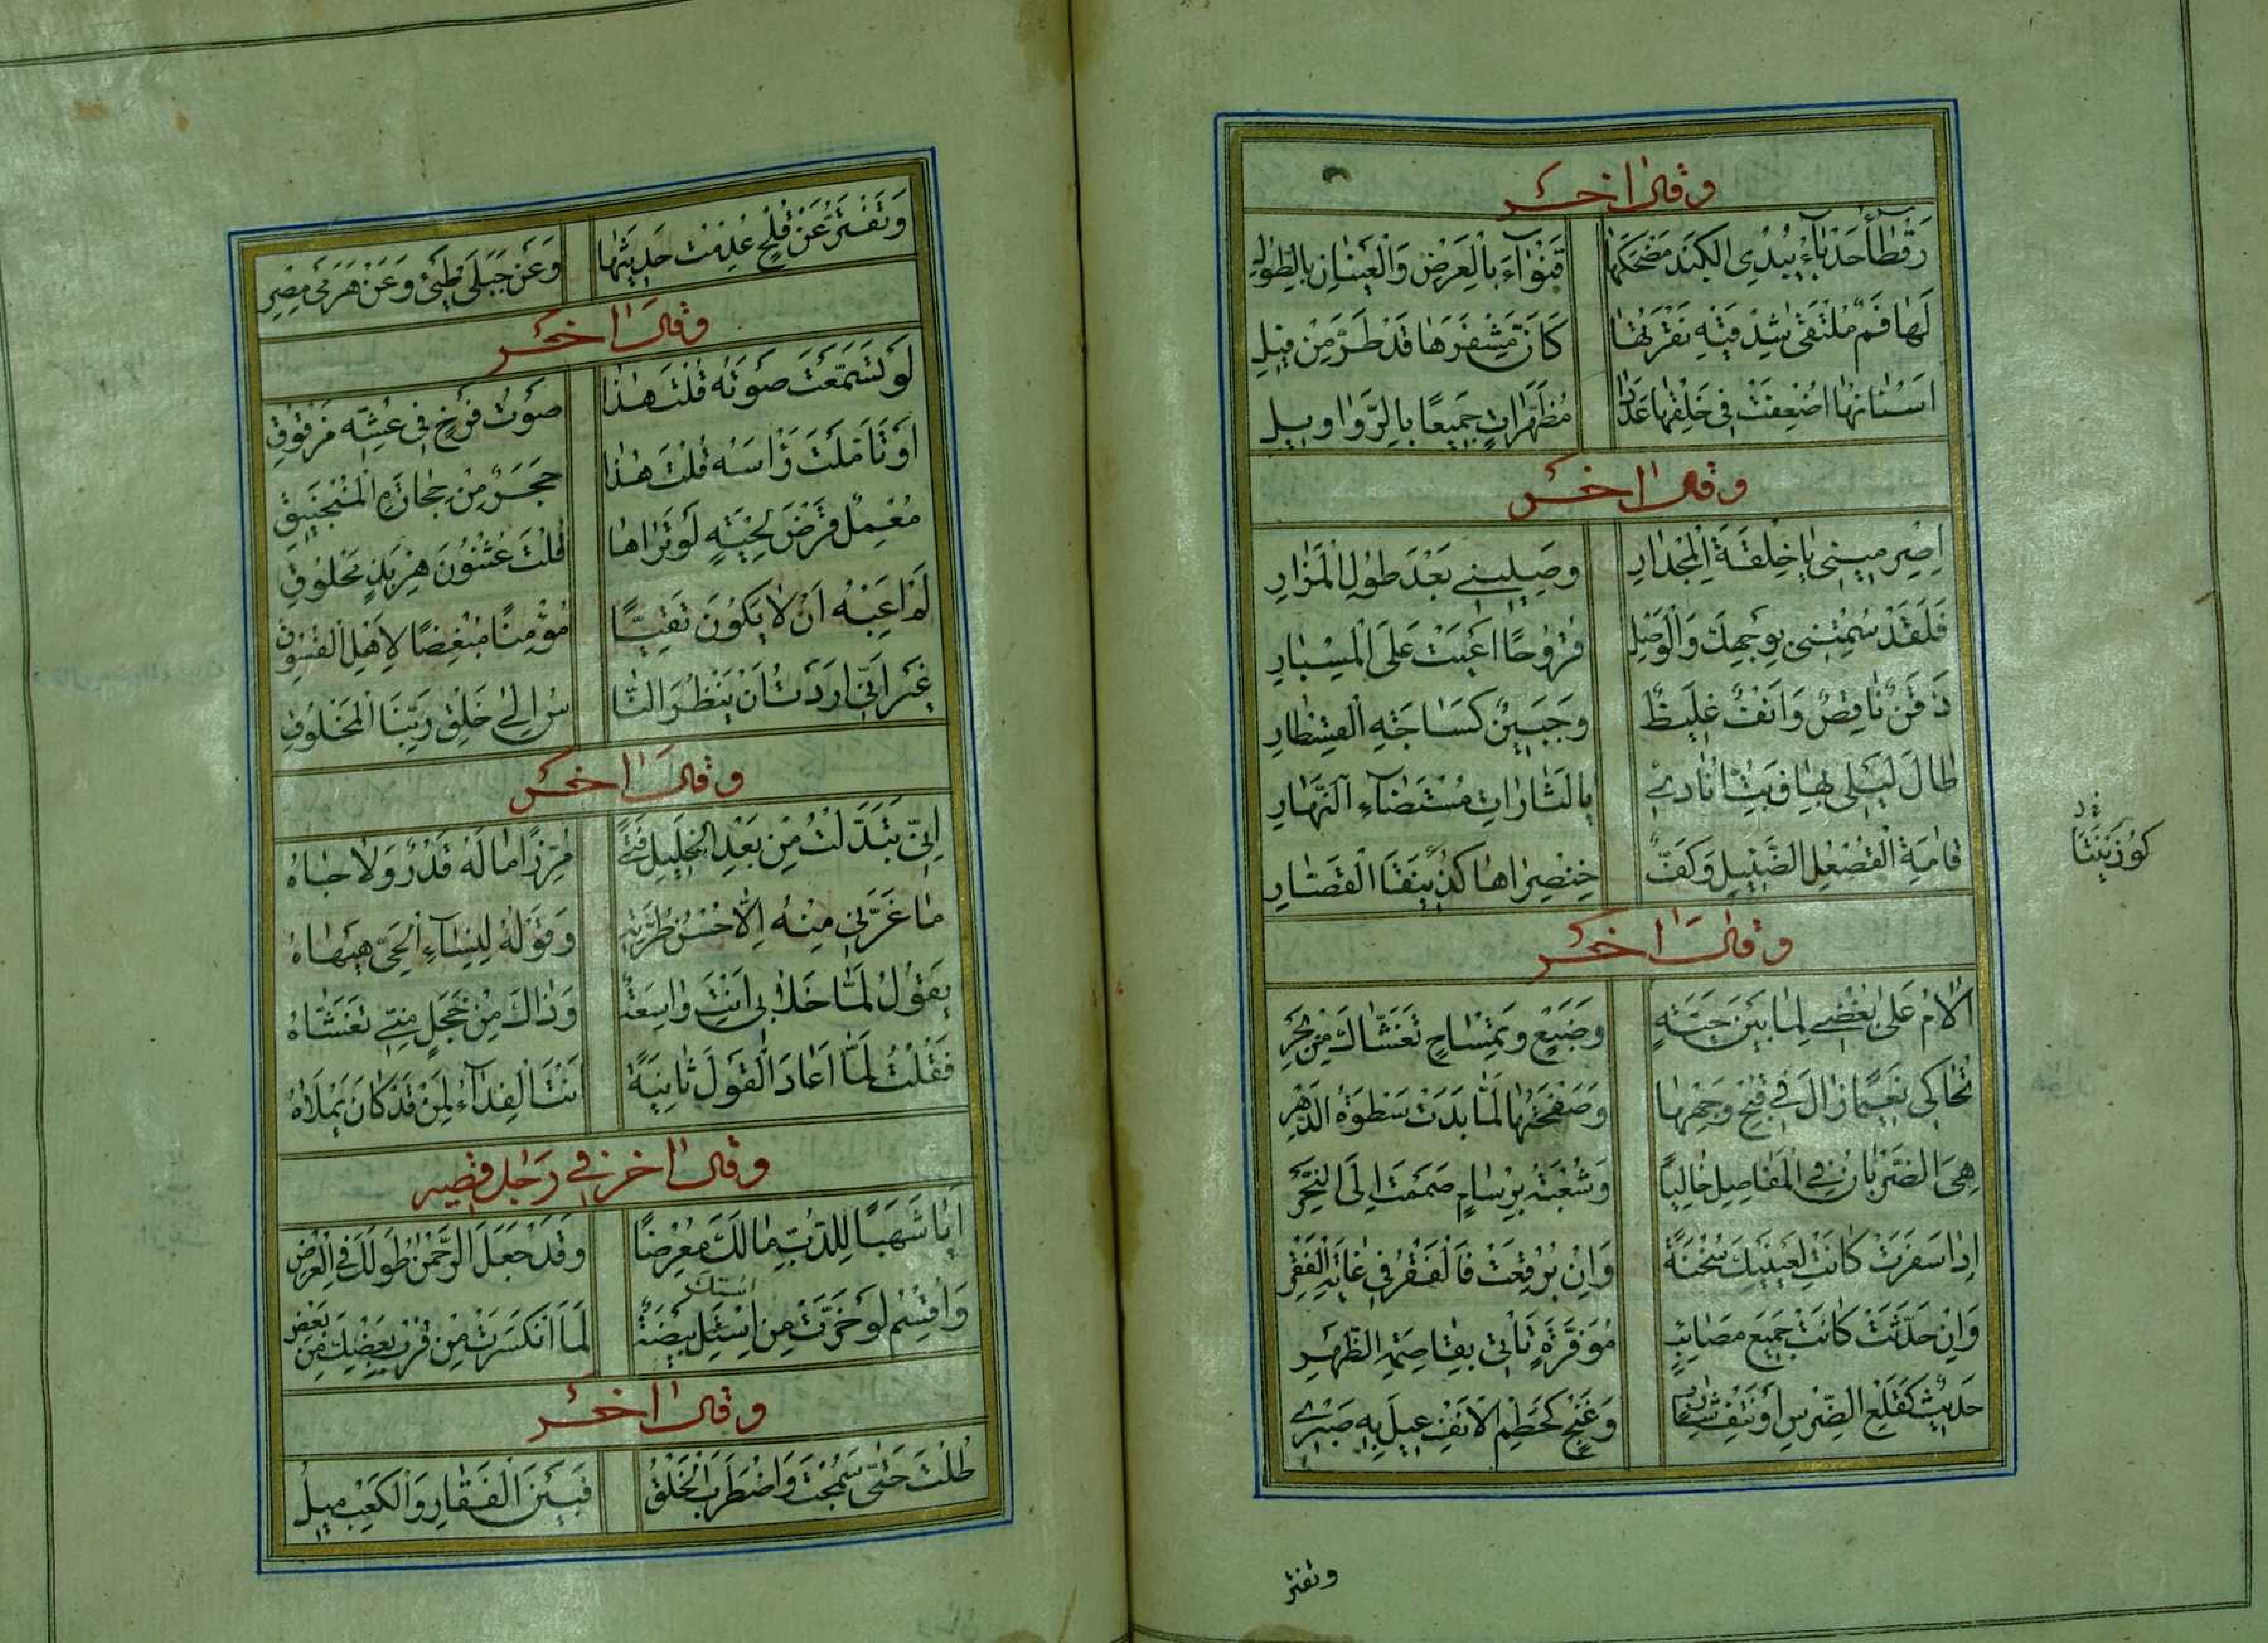 وقال اخر
رَقْطَاءُ حَدْبَاءُ يُبْدِى الكَبَدَ مَضْحَكُهَا قَنْوَاءُ بِالْعَرْضِ وَالْعَيْنَانِ بِالطُّولِ
لَهَا فَمٌ مُلْتَقَى شِدْقَيْهِ نَقْرَتُهَا كَأَنَّ مِشْفَرَهَا قَدْ طُرَّ مِنْ فِيلِ
اَسْنَانُهَا اُضْعِفَتْ فِى خَلْقِهَا عَدَدًا مُظَهَّرَاتٍ جَمِيعًا بِالرَّوَاوِيلِ
وقال اخر
اِصْرِمِيْنِى يَا خِلْقَةَ الْمِجْدَارِ وَصِلِيْنِى بَعْدَ طُولِ الْمَزَارِ
فَلَقَدْ سُمْتِنِى بِوَجْهِكِ وَالْوَصْلِ قُرُوحًا اَعْيَتْ عَلَى الْمِسْبَارِ
ذَقَنٌ نَاقِصٌ وَاَنْفٌ غَلِيظٌ وَجَبِينٌ كَسَاجَةِ الْقِسْطَارِ
طَالَ لَيْلِى بِهَا فَبِتُّ اُنَادِى يَا لَثَارَاتِ مُسْتَضَاءِ النَّهَارِ
قَامَةُ الْقُصْعُلِ الضَّئِيلِ وَكَفٌّ خِنْصِرَاهَا كُذِيْنَقَا الْقَصَّارِ
وقال اخر
اُلَامُ عَلَى بُغْضِى لِمَا بَيْنَ حَيَّةٍ وَضَبُعٍ وَتِمْسَاحٍ تَغَشَّاكَ مِنْ بَحْرِ
تُحَاكِى نَعِيمًا زَالَ فِى قُبْحِ وَجْهِهَا وَصَفْحَتُهَا لَمَّا بَدَتْ سَطْوَةُ الدَّهْرِ
هِىَ الضَّرَبَانُ فِى الْمَفَاصِلِ خَالِيًا وَشُعْبَةُ بِرْسَامٍ ضَمَمْتَ اِلَى النَّحْرِ
اِذَا سَفَرَتْ كَانَتْ لِعَيْنَيْكَ سُخْنَةً وَاِنْ بُرْقِعَتْ فَالْفَقْرُ فِى غَايَةِ الْفَقْرِ
وَاِنْ حَدَّثَتْ كَانَتْ جَمِيعَ مَصَائِبٍ مُوَفَّرَةٍ تَأْتِى بِقَاصِمَةِ الظَّهْرِ
حَدِيثٌ كَقَلْعِ الضِّرْسِ اَوْ نَتْفِ شَارِبٍ وَغَنْجٌ كَحَطْمِ الْاَنْفِ عِيلَ بِهِ صَبْرِى
وتفتر
كُوذِيْنَقَا
وَتَفْتَرُّ عَنْ قُلْحٍ عَدِمْتُ حَدِيثَهَا وَعَنْ جَبَلَى طَيِّئٍ وَعَنْ هَرَمَى مِصْرِ
وقال اخر
لَوْ تَسَمَّعْتَ صَوْتَهُ قُلْتَ هٰذَا صَوْتُ فَرْخٍ فِى عُشِّهِ مَزْقُوقِ
اَوْ تَأَمَّلْتَ رَأْسَهُ قُلْتَ هٰذَا حَجَرٌ مِنْ حِجَارَةِ الْمَنْجَنِيقِ
مُعْمِلٌ قَرْضَ لِحْيَةٍ لَوْ تَرَاهَا قُلْتَ عُثْنُونَ هِرْبَذٍ مَحْلُوقِ
لَمْ اَعِبْهُ اَنْ لَا يَكُونَ تَقِيًّا مُؤْمِنًا مُبْغِضًا لِاَهْلِ الْفُسُوقِ
غَيْرَ اَنِّى اَرَدْتُ اَنْ يَنْظُرَ النَّا سُ اِلَى خَلْقِ رَبِّنَا الْمَخْلُوقِ
وقال اخر
اِنِّى تَبَدَّلْتُ مِنْ بَعْدِ الْخَلِيلِ فَتًى مُرَزَّأً مَا لَهُ قَدْرٌ وَلَا جَاهُ
مَا غَرَّنِى مِنْهُ اِلَّا حُسْنُ طُرَّتِهِ وَقَوْلُهُ لِنِسَاءِ الْحَىِّ هَيْهَاهُ
يَقُولُ لَمَّا خَلَا بِى اَنْتِ وَاسِعَةٌ وَذَاكَ مِنْ خَجَلٍ مِنِّى تَغَشَّاهُ
فَقُلْتُ لَمَّا اَعَادَ الْقَوْلَ ثَانِيَةً اَنْتَ الْفِدَاءُ لِمَنْ قَدْ كَانَ يَمْلَاهُ
وقال اخر فى رجل قصير
اَيَا شَبَهًا لِلدُّبِّ مَا لَكَ مُعْرِضًا وَقَدْ جَعَلَ الرَّحْمٰنُ طُولَكَ فِى الْعَرْضِ
وَاُقْسِمُ لَوْ خَرَّتْ مِنِ اسْتِكَ بَيْضَةٌ لَمَا انْكَسَرَتْ مِنْ قُرْبِ بَعْضِكَ مِنْ بَعْضِ
استك
وقال اخر
طُلْتَ حَتَّى سَمُجْتَ وَاضْطَرَبَ الْخَلْقُ فَبَيْنَ الْفَقَارِ وَالْكَعْبِ مِيلُ